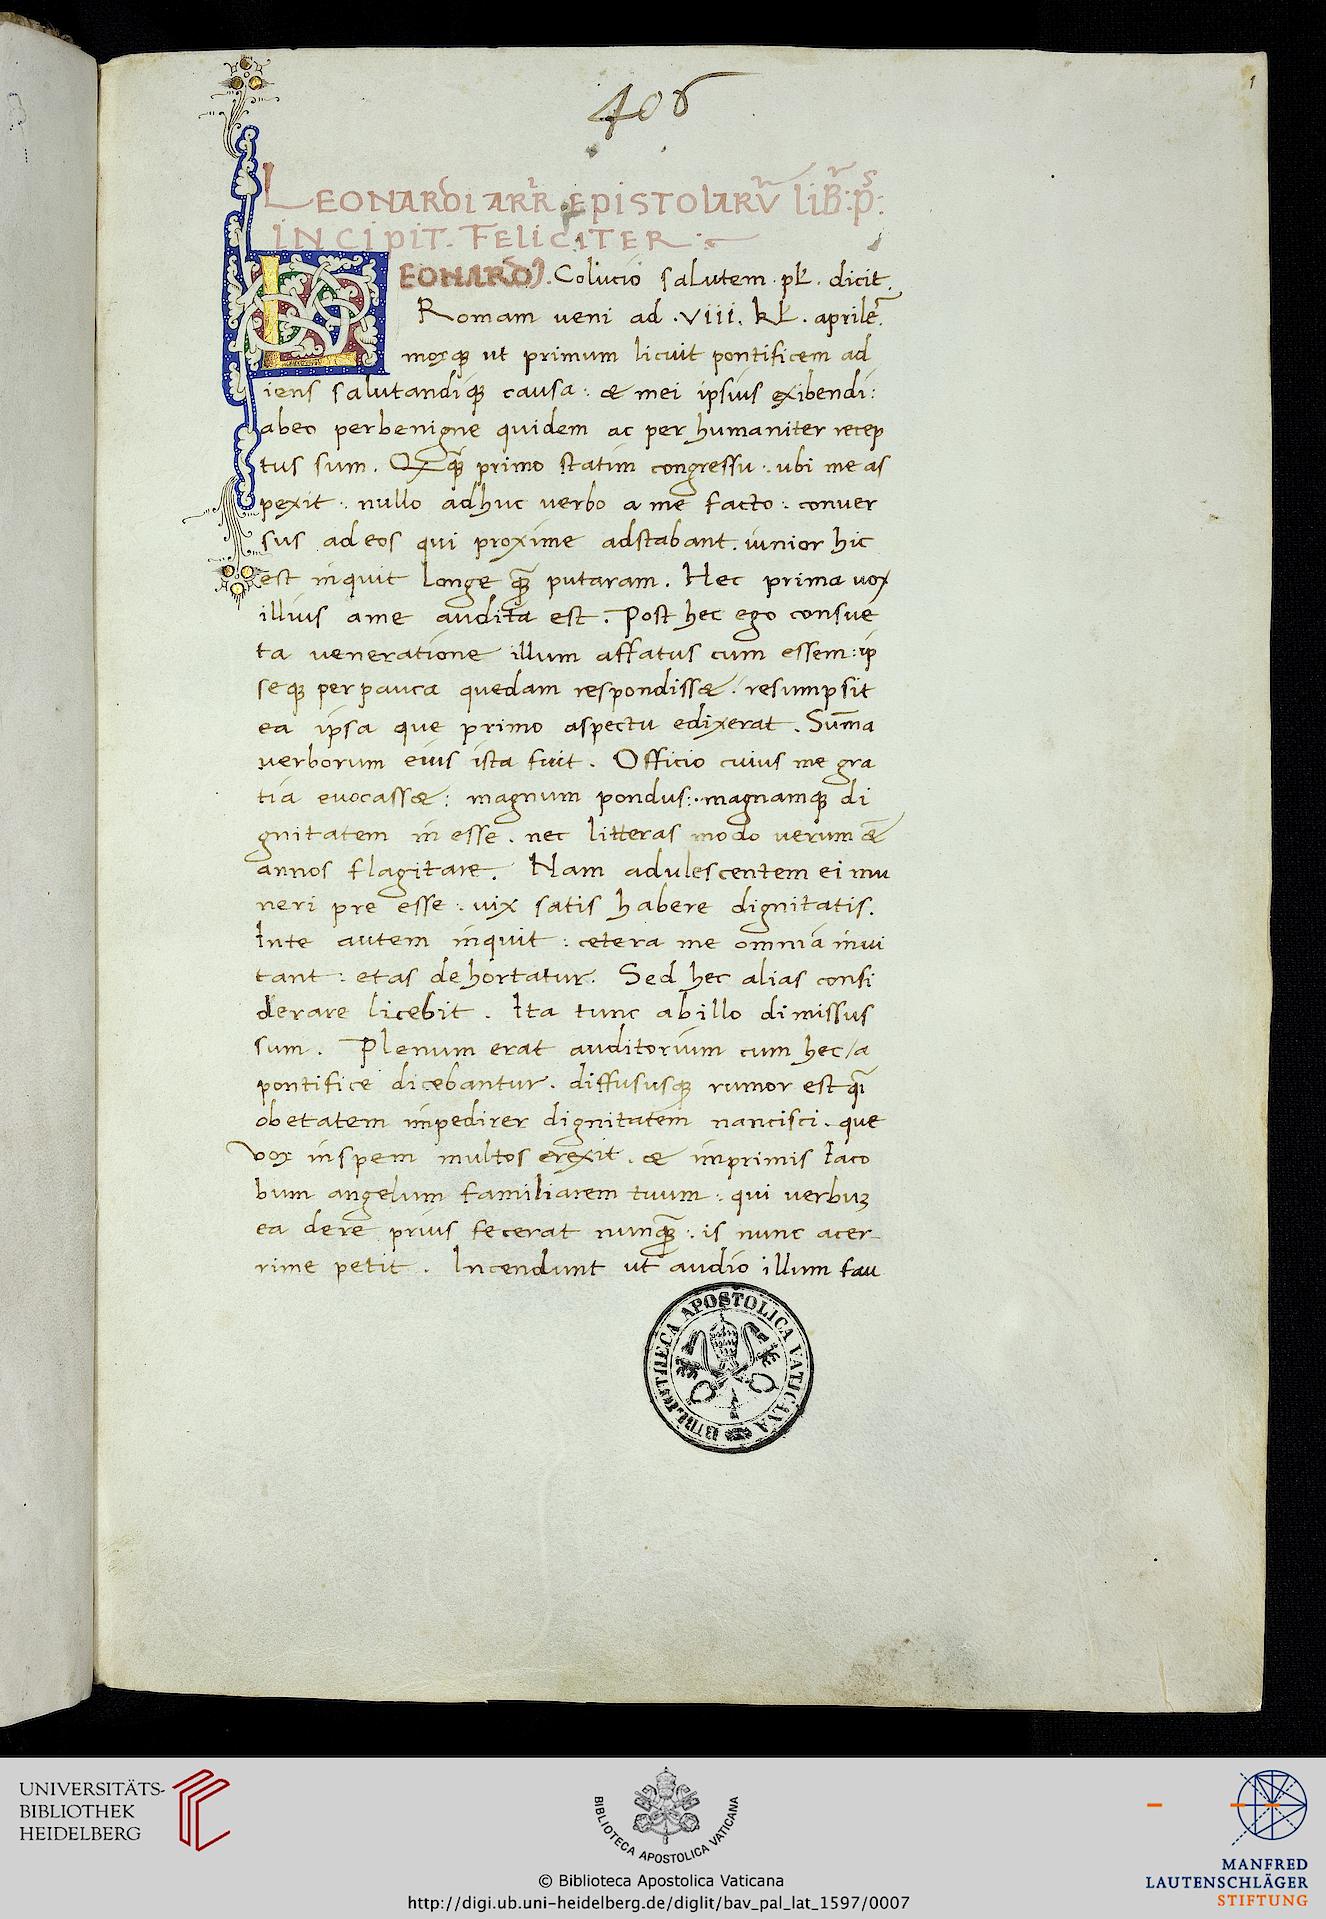 406
1
LEONARDI ARR̃. EPISTOLARṼ LIB̃: P̃S:
INCIPIT. FELICITER:
LEONARDVS. Colucio salutem. pł. dicit.
Romam veni ad .viii. kł. aprilẽ.
moxqȝ ut primum licuit pontificem ad
iens salutandiqȝ causa: & mei ipsius exibendi:
abeo perbenigne quidem ac per humaniter recep
tus sum. primo statim congressu: ubi me as
pexit: nullo adhuc verbo a me facto: conver
sus ad eos qui proxime adstabant. iunior hic
est inquit longe qȝ̃ putaram. Hec prima vox
illius a me audita est. Post hec ego consue
ta veneratione illum affatus cum essem: ip
seqȝ perpauca quedam respondiss&: resumpsit
ea ipsa que primo aspectu edixerat. Sum̃a
verborum eius ista fuit. Officio cuius me gra
tia evocass&: magnum pondus: magnamqȝ di
gnitatem in esse. nec litteras modo verum &̃
annos flagitare. Nam adulescentem ei mu
neri pre esse: vix satis habere dignitatis.
Inte autem inquit: cetera me omnia invi
tant: etas dehortatur. Sed hec alias consi
derare licebit. Ita tunc ab illo dimissus
sum. Plenum erat auditorium cum hec/a
pontifice dicebantur. diffususqȝ rumor est
ob etatem impedirer dignitatem nancisci. que
vox inspem multos erexit. & imprimis Iaco
bum angelum familiarem tuum: qui verbuȝ
ea dere prius fecerat nunqȝ̃: is nunc acer-
rime petit. Incendunt ut audio illum fau
BIBLIOTHECA APOSTOLICA VATICANA
UNIVERSITÄTS-
BIBLIOTHEK
HEIDELBERG
BIBLIOTECA APOSTOLICA VATICANA
© Biblioteca Apostolica Vaticana
http://digi.ub.uni-heidelberg.de/diglit/bav_pal_lat_1597/0007
MANFRED
LAUTENSCHLÄGER
STIFTUNG